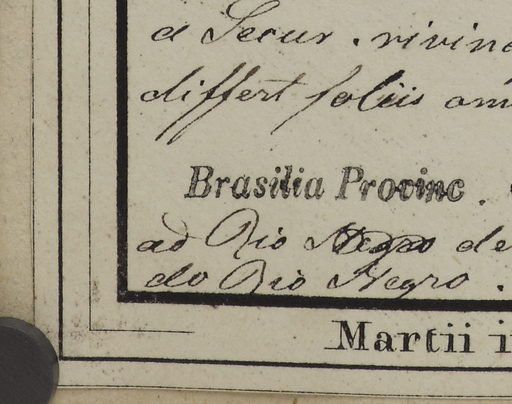 a Secur. rivina
differt foliis om
Brasilia Provinc.
ad Rio Negro de
do Rio Negro.
Martii i